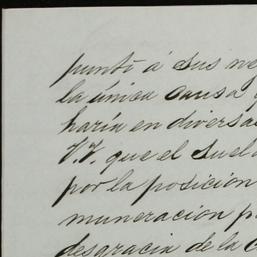 puntó á sus ne
la única causa
haría en diversa
V.V. que el suel
por la posición
muneracion p
desgracia de la